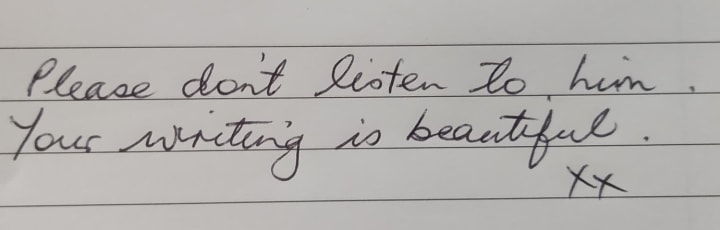 Please don't listen to him.
Your writing is beautiful.
xx